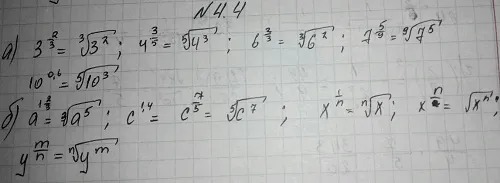 №4.4
а) 3^{2/3} = ∛(3²); 4^{3/5} = ⁵√(4³); 6^{2/3} = ∛(6²); 7^{5/9} = ⁹√(7⁵)
10^{0,6} = ⁵√(10³)
б) a^{1 2/3} = ³√(a⁵); c^{1,4} = c^{7/5} = ⁵√(c⁷); x^{1/n} = ⁿ√x; x^{n/2} = √(xⁿ);
y^{m/n} = ⁿ√(y^m)